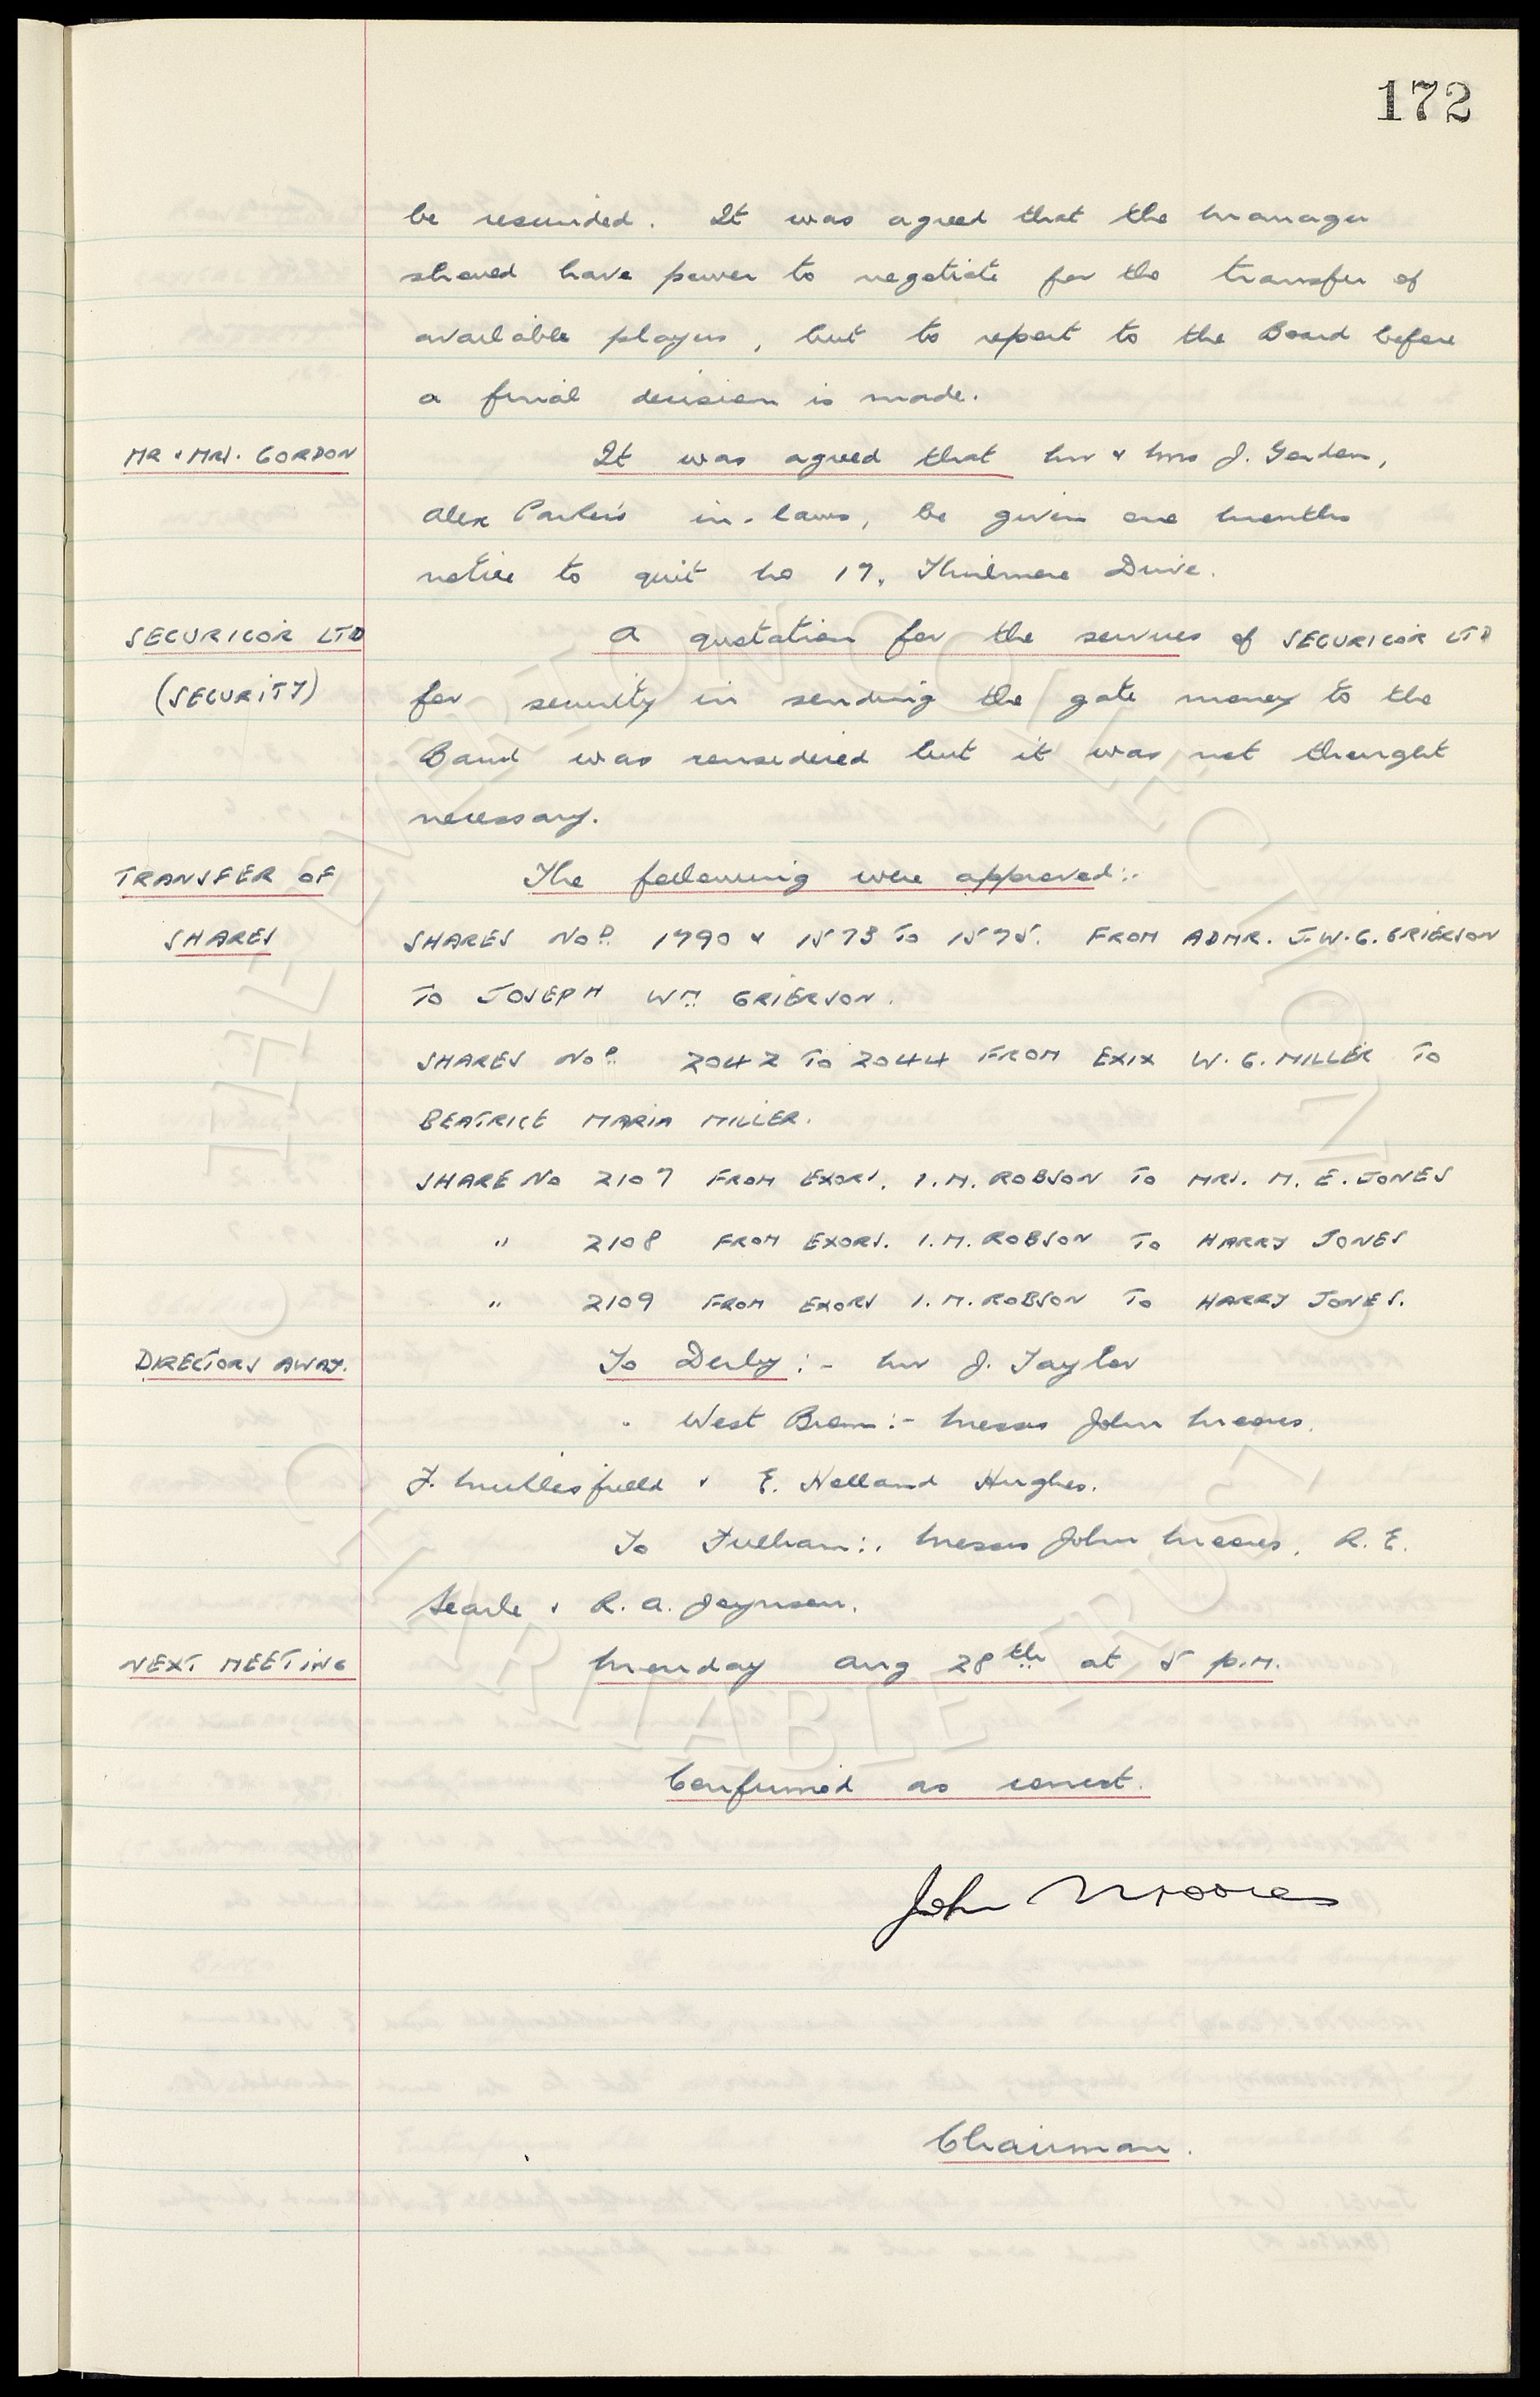 172
be rescinded. It was agreed that the manager
should have power to negotiate for the transfer of
available players, but to report to the Board before
a final decision is made.
MR & MRS. GORDON It was agreed that Mr & Mrs J. Gordon,
Alex Parker's in-laws, be given one months
notice to quit no 17, Thirlmere Drive.
SECURICOR LTD A quotation for the services of SECURICOR LTD
(SECURITY) for security in sending the gate money to the
Bank was considered but it was not thought
necessary.
TRANSFER OF The following were approved:-
SHARES SHARES Nos. 1790 & 1573 TO 1575. FROM ADMR. J.W.G. GRIERSON
TO JOSEPH WM. GRIERSON.
SHARES Nos. 2042 TO 2044 FROM EXIX W.G. MILLER TO
BEATRICE MARIA MILLER.
SHARE No 2107 FROM EXORS. I.M. ROBSON TO MRS. M. E. JONES
" 2108 FROM EXORS. I.M. ROBSON TO HARRY JONES
" 2109 FROM EXORS I.M. ROBSON TO HARRY JONES.
DIRECTORS AWAY. To Derby:- Mr J. Taylor
" West Brom:- Messrs John Moores,
F. Micklesfield & E. Holland Hughes.
To Fulham:- Messrs John Moores, R. E.
Searle & R. A. Joynson.
NEXT MEETING Monday Aug 28th at 5 p.m.
Confirmed as correct.
John Moores
Chairman.